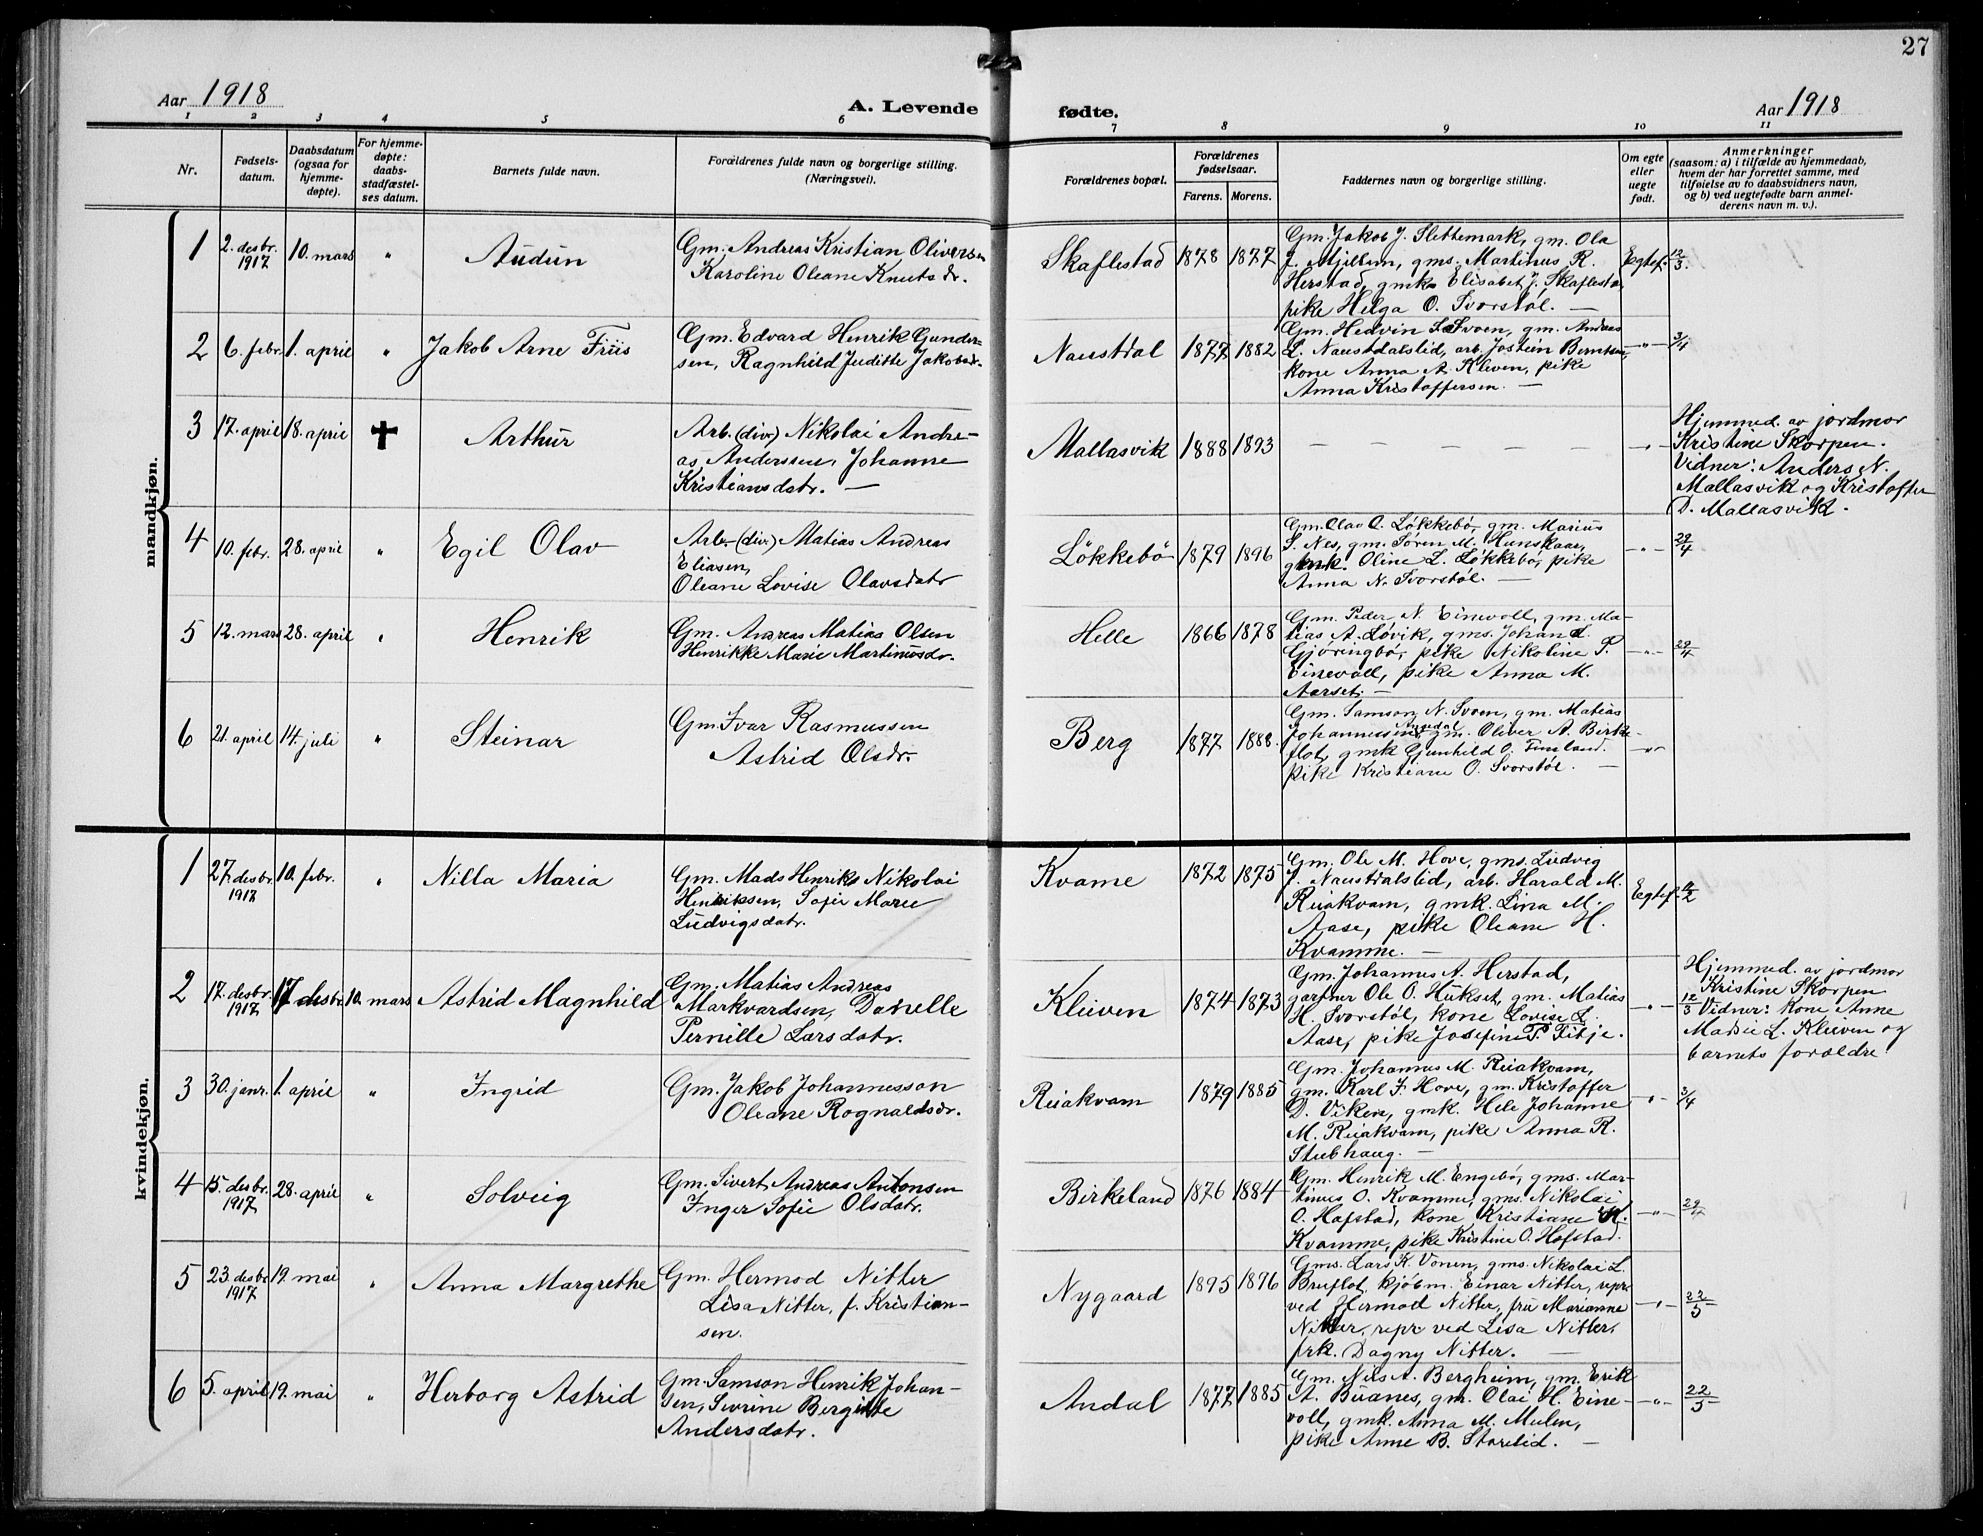 27
Aar 1918
A. Levende
fødte.
Aar 1918
1 2 3 4 5 6 7 8 9 10 11
Nr.
Fødsels-
datum.
Daabsdatum
(ogsaa for
hjemme-
døpte).
For hjemme-
døpte:
daabs-
stadfæstel-
ses datum.
Barnets fulde navn.
Forældrenes fulde navn og borgerlige stilling.
(Næringsvei).
Forældrenes bopæl.
Forældrenes
fødselsaar.
Farens. Morens.
Faddernes navn og borgerlige stilling.
Om egte
eller
uegte
født.
Anmerkninger
(saasom: a) i tilfælde av hjemmedaab,
hvem der har forrettet samme, med
tilføielse av to daabsvidners navn,
og b) ved uegtefødte barn anmel-
derens navn m. v.).
mandkjøn.
1
2. desbr.
1917
10. mars
"
Audun
Gm. Andreas Kristian Oliversen
Karoline Oleane Knutsdr.
Skaflestad
1878
1877
Gm. Jakob J. Slettemark, gm. Ola
J. Mjellem, gms. Martinus R.
Herstad, gmk. Elisabet J. Skaflestad
pike Helga O. Svorstøl. —
Egtef.
12/3.
2
6. febr.
1. april
"
Jakob Arne Friis
Gm. Edvard Henrik Gunder-
sen, Ragnhild Juditte Jakobsdr.
Naustdal
1877
1882
Gm. Hedvin S. Svoen, gm. Andreas
L. Naustdalslid, arb. Jostein Berntsen,
kone Anna A. Kleven, pike
Anna Kristoffersen. —
—"—
3/4
3
17. april
18. april
✝
Arthur
Arb. (div.) Nikolai Andre-
as Anderssen, Johanne
Kristiansdatr. —
Mallasvik
1888
1893
— — — — —
—"—
Hjemmed. av jordmor
Kristine Skorpen.
Vidner: Anders N.
Mallasvik og Kristoffer
D. Mallasvik.
4
10. febr.
28. april
"
Egil Olav
Arb. (div.) Matias Andreas
Eliasen,
Oleane Lovise Olavsdatr
Løkkebø
1879
1896
Gm. Olav O. Løkkebø, gm. Marius
S. Nes, gm. Søren M. Hunskaar,
gmk. Oline L. Løkkebø, pike
Anna N. Svorstøl. —
—"—
29/4
5
12. mars
28. april
"
Henrik
Gm. Andreas Matias Olsen
Henrikke Marie Martinusdr.
Helle
1866
1878
Gm. Peder N. Einevoll, gm. Ma-
tias A. Løvik, gms. Johan L.
Gjøringbø, pike Nikoline P.
Einevoll, pike Anna M.
Aarset. —
—"—
29/4
6
21. april
14. juli
"
Steinar
Gm. Ivar Rasmussen
Astrid Olsdr.
Berg
1877
1888.
Gm. Samson N. Svoen, gm. Matias
Johannessen Aasedal, gm. Oliver A. Birke-
flot, gmk Gunhild O. Timland.
pike Kristiane O. Svorstøl. —
—"—
kvindekjøn.
1
27. desbr.
1917
10. febr.
"
Nilla Maria
Gm. Mads Henrik Nikolai
Henriksen, Sofie Marie
Ludvigsdatr.
Kvame
1872
1875
Gm. Ole M. Hove, gms. Ludvig
J. Naustdalslid, arb. Harald M.
Reiakvam, gmk. Lina M.
Aase, pike Oleane H.
Kvamme. —
Egtef.
2
17. desbr.
1917
17 desbr.
10. mars
Astrid Magnhild
Gm. Matias Andreas
Markvardsen, Danelle
Pernille Larsdatr.
Kleiven
1874
1873
Gm. Johannes A. Herstad,
gartner Ole O. Hukset, gm. Matias
H. Svorstøl, kone Lovise L.
Aase, pike Josefine P. Fitje.
—"—
12/3
Hjemmed. av jordmor
Kristine Skorpen
Vidner: Kone Anne
Marie L. Kleiven og
barnets forældre
3
30. janr.
1. april
"
Ingrid
Gm. Jakob Johannesson
Oleane Rognaldsdr.
Reiakvam
1879
1885
Gm. Johannes M. Reiakvam,
gm. Karl J. Hove, gm. Kristoffer
D. Viken, gmk. Hele Johanne
M. Reiakvam, pike Anna R.
Stubhaug. —
—"—
3/4
4
15. desbr.
1917
28. april
"
Solveig
Gm. Sivert Andreas Antonsen
Inger Sofie Olsdatr.
Birkeland
1876
1884
Gm. Henrik M. Engebø, gms. Mar-
tinus O. Kvamme, gms. Nikolai
O. Hafstad, kone Kristiane K.
Kvamme, pike Kristine O. Hafstad.
—"—
29/4
5
23. desbr
1917
19. mai
"
Anna Margrethe
Gm. Hermod Nitter
Lisa Nitter, f. Kristian-
sen.
Nygaard
1895
1896
Gms. Lars K. Vonen, gms. Nikolai L.
Bruflot, kjøbm. Einar Nitter, repr
ved Hermod Nitter, fru Marianne
Nitter, repr ved Lisa Nitter,
frk. Dagny Nitter. —
—"—
22/5
6
5. april
19. mai
"
Herborg Astrid
Gm. Samson Henrik Johan-
sen, Sivrine Bergitte
Andersdatr.
Andal
1877
1885
Gm. Nils A. Bergheim, gm. Erik
A. Buanes, gm. Olai H. Eine-
voll, gmk. Anna M. Mulen,
pike Anne B. Storelid. —
—"—
22/5